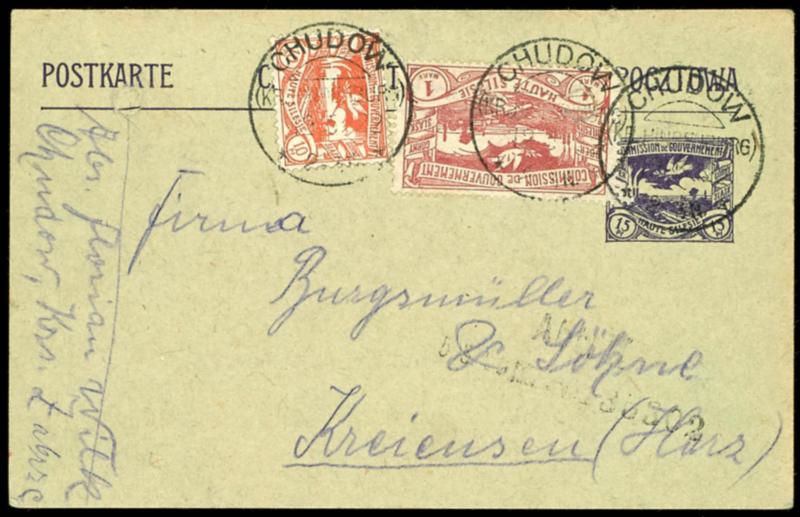 POSTKARTE
POCZTOWA
CHUDOW
CHUDOW
CHUDOW
10
HAUTE SILESIE
1 MARK 1
HAUTE SILESIE
COMMISSION DE GOUVERNEMENT
COMMISSION DE GOUVERNEMENT
15 15
HAUTE SILESIE
Firma
Burgsmüller
& Söhne
Kreiensen (Harz)
Florian Wilk
Chudow, Krs. Zabrze